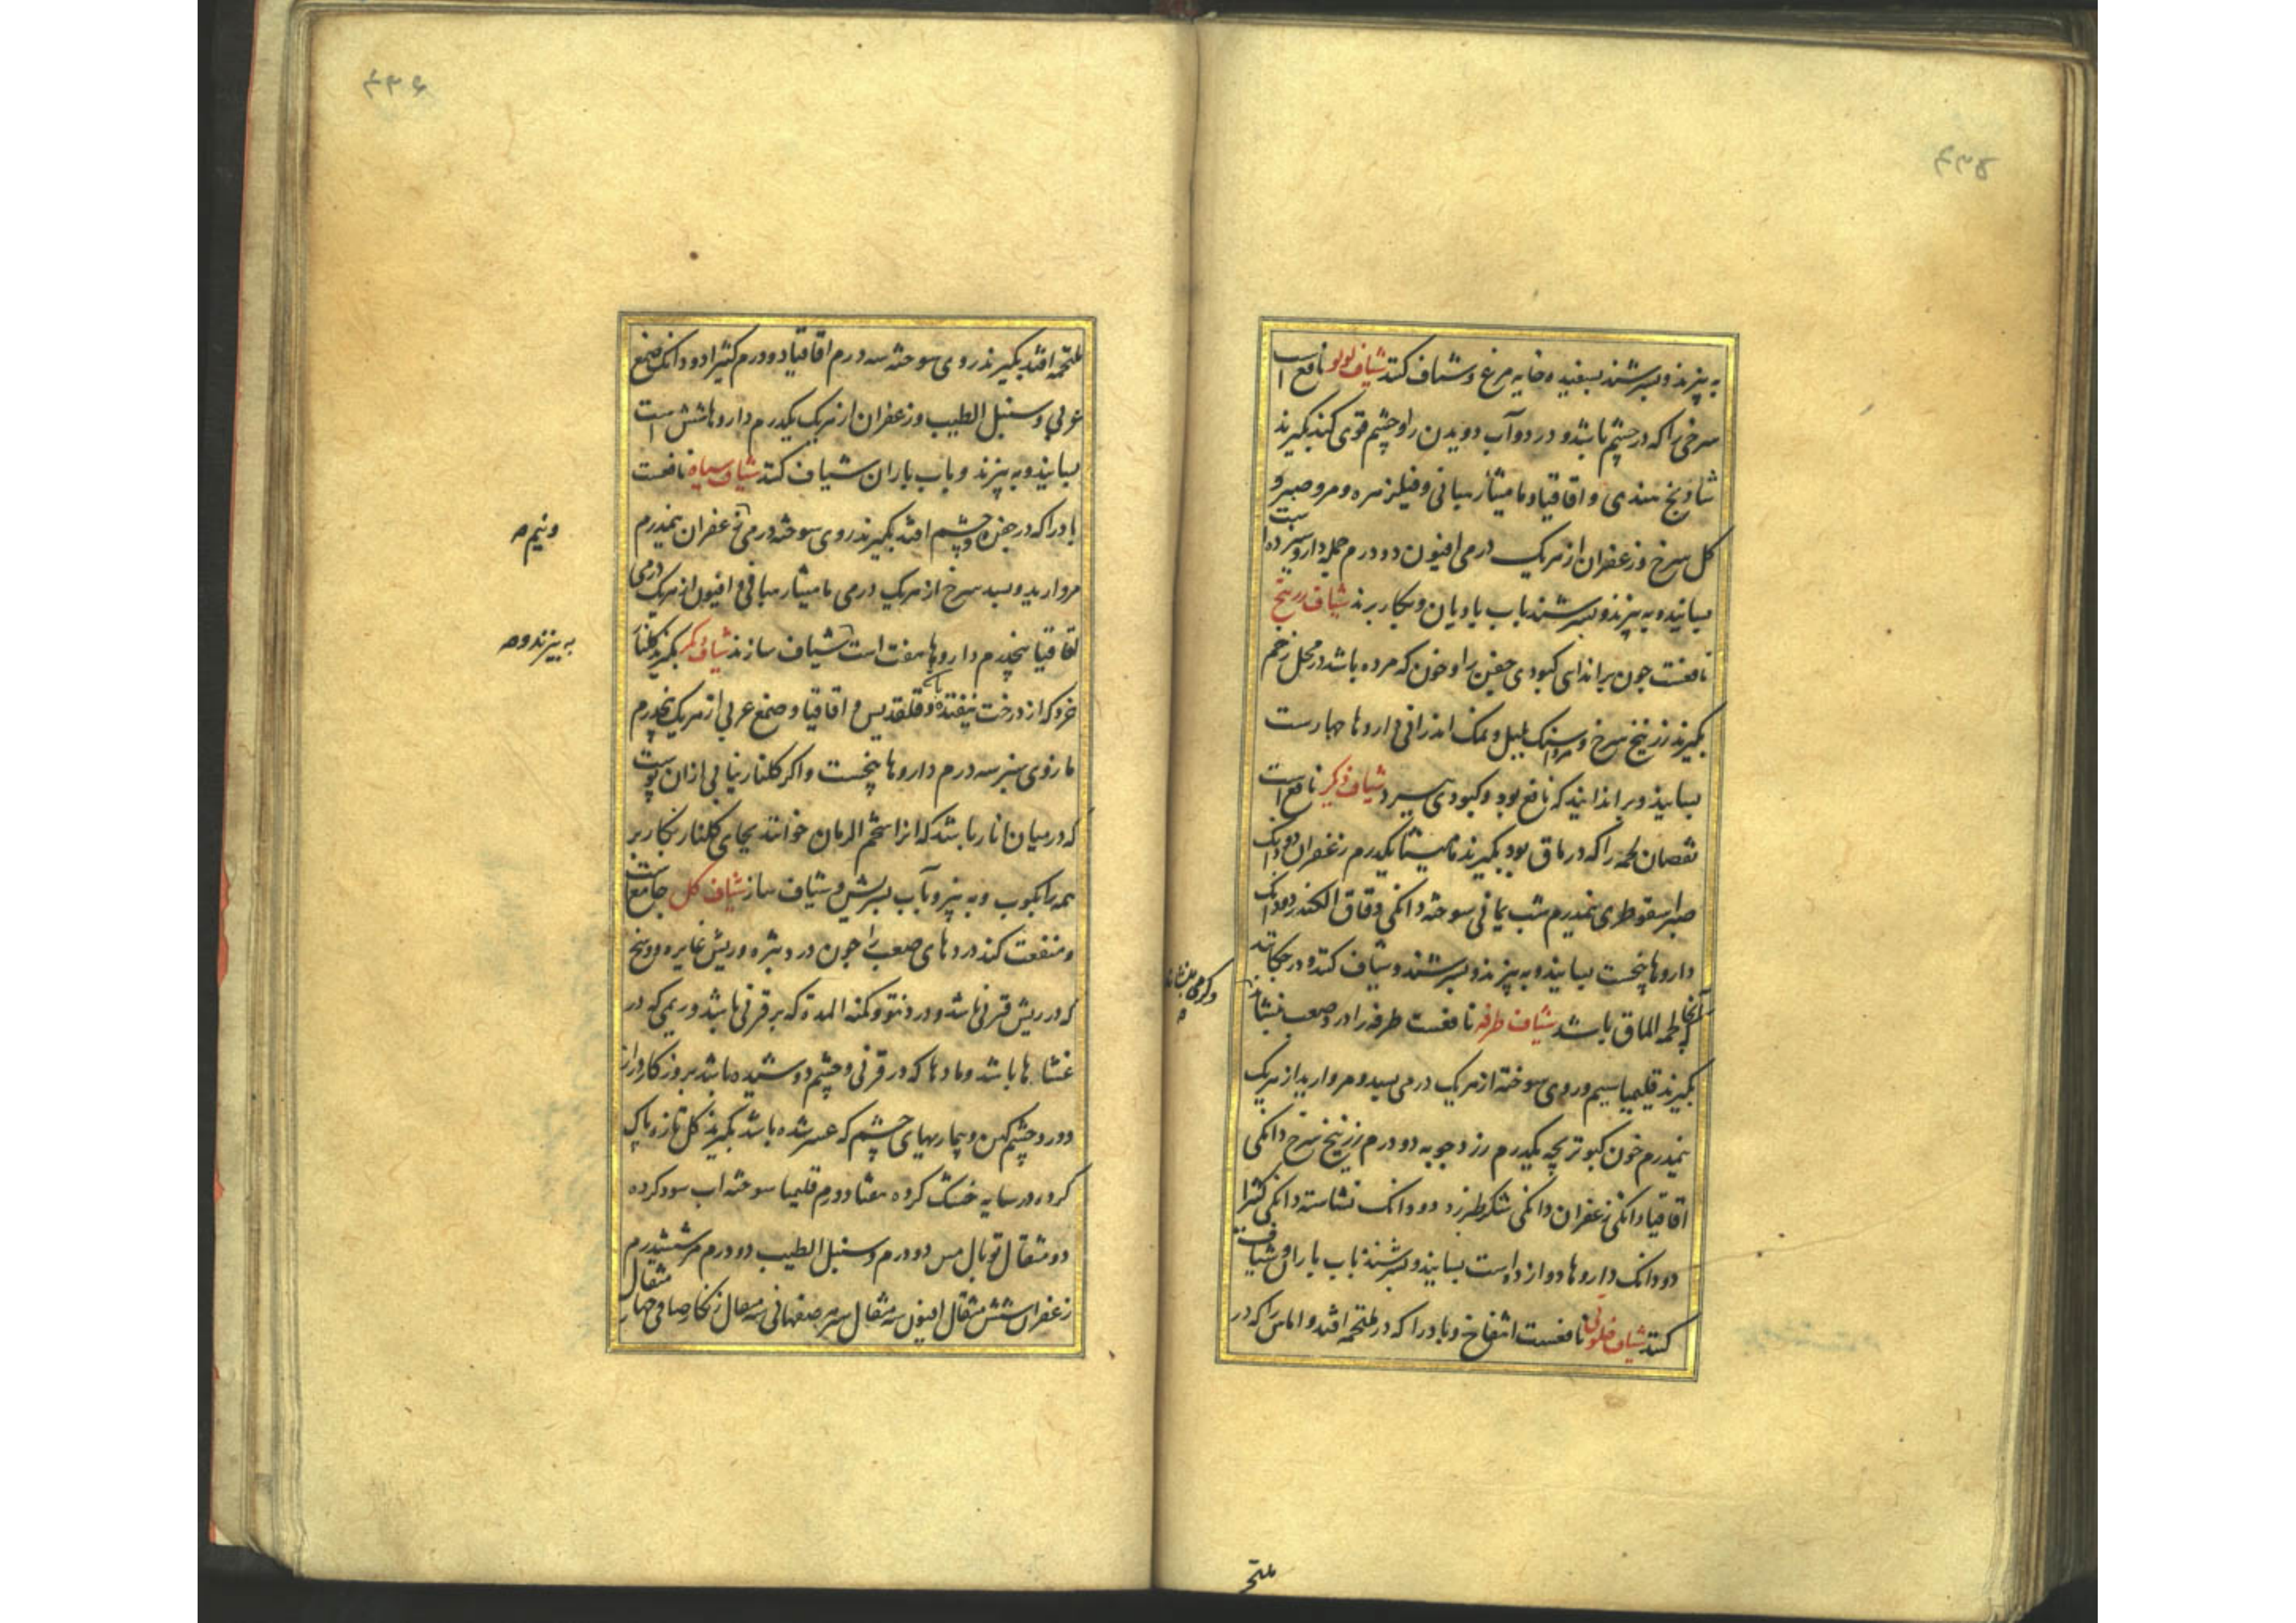 ۴۳۵
به پزند و بسرشند بسفیده خایه مرغ و شیاف کنند شیاف لولو نافع است
سرخی را که در چشم باشد و درد و آب دویدن را و چشم قوی کند بگیرند
شادنج هندی و اقاقیا و مامیثا و میانی و فیلزهره و مر و صبر و
کل سرخ و زعفران از هریک درمی افیون دو درم جمله دارو سیزده است
بسایند و به پزند و بسرشند باب بادیان و بکار برند شیاف زرنیخ
نافعست چون براندای کبودی جفن را و خون که مرده باشد در محل زخم
بگیرند زرنیخ سرخ و نمک اندرانی داروها چهارست
بسایند و براندایند که نافع بود و کبودی ببرد شیاف دیگر نافع است
نقصان لحمه را که در ماق بود بگیرند مامیثا یکدرم زعفران دو دانک
صبر اسقوطری نیمدرم شب یمانی سوخته دانکی دقاق الکندر دو دانک
داروها پنجست بسایند و به پزند و بسرشند و شیاف کنند و در چکانند
آنجا که لحمه الماق باشد شیاف طرفه نافعست طرفه را و درد صعب بنشاند
بگیرند قلیمیا سیم و روی سوخته از هریک درمی بسد و مروارید از هریک
نیمدرم خون کبوتر بچه یکدرم زرد چوبه دو درم زرنیخ سرخ دانکی
اقاقیا دانکی زعفران دانکی شکر طبرزد دو دانک نشاسته دانکی کثیرا
دو دانک داروها دوازده است بسایند و بسرشند باب باران و شیاف
کنند شیاف خلوقی نافعست انتفاخ و باد را که در ملتحمه افتد و اماس را که در
ملتحمه
۴۳۶
ملتحمه افتد بگیرند روی سوخته سه درم اقاقیا دو درم کثیرا دو دانک صمغ
عربی و سنبل الطیب و زعفران از هریک یکدرم داروها شش است
بسایند و به پزند و باب باران شیاف کنند شیاف سیاه نافعست
باد را که در جفن و چشم افتد بگیرند روی سوخته درمی زعفران نیمدرم
ونیم صح
مروارید و بسد سرخ از هریک درمی مامیثا و میانی و افیون از هریک درمی
اقاقیا پنجدرم داروها هفت است شیاف سازند شیاف دیگر بگیرند کلنار
به پزند و صح
خرد که از درخت بیفتد و قلقدیس و اقاقیا و صمغ عربی از هریک پنجدرم
مازوی سبز سه درم داروها پنجست و اکر کلنار نیابی ازان پوست
که در میان انار باشد که انرا شحم الرمان خوانند بجای کلنار بکار بر
همه را بکوب و به پز و بآب بسرش و شیاف ساز شیاف کل
و منفعت کند دردهای صعب را چون درد بثره و ریش غایره و وسخ
که در ریش قرنی باشد و درد نتو و کمنة المدة که بر قرنی باشد و ریمی که در
غشاها باشد و مادها که در قرنی و چشم دوشیده باشد بروزکار دراز
و درد چشم کهن و بیماریهای چشم که عسر شده باشد بگیرند کل تازه پاک
کرد و در سایه خشک کرده هفتاد و درم قلیمیا سوخته اب سود کرده
دو مثقال توبال مس دو درم و سنبل الطیب دو درم مر ششدرم
زعفران شش مثقال افیون سه مثقال سرمه صفهانی سه مثقال زنکار صافی چهار مثقال